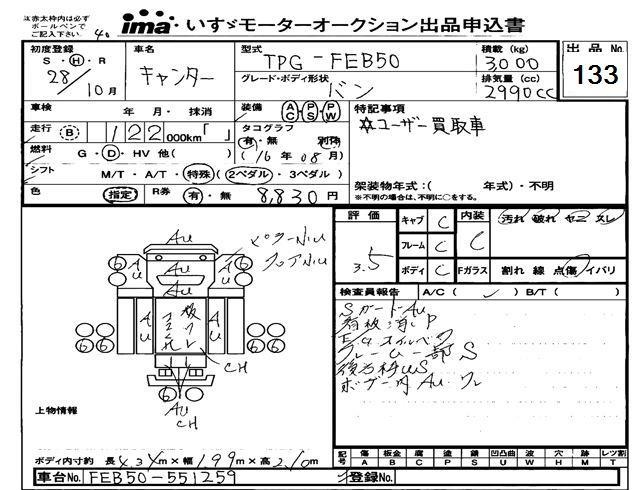 ※赤太枠内は必ず
ボールペンで
ご記入下さい
ima いすゞモーターオークション出品申込書
初度登録
S・H・R
28/10月
車名
キャンター
型式
TPG-FEB50
積載(kg)
3,000
グレード・ボディ形状
バン
排気量(cc)
2990cc
出品No.
133
車検 年・月・抹消
装備 AC PS PW
走行 B 122 000km「 」
タコグラフ
有・無 別体
(16年08月)
特記事項
☆ユーザー買取車
燃料 G・D・HV 他( )
シフト M/T・A/T・特殊(2ペダル・3ペダル)
架装物年式:( 年式)・不明
※不明の場合は、不明に○をする。
色 指定 R券 有・無 8,830円
評価 3.5
キャブ C
フレーム C
ボディ C
内装 C
Fガラス
汚れ 破れ ヤニ スレ
割れ 線 点傷 イバリ
検査員報告 A/C( ✓ ) B/T( )
SガードAU
看板消しP
フレーム一部S
AU
AU
AU
AU
AU
CH
AU
CH
6
6
6
6
6
6
6
6
上物情報
ボディ内寸約 長4.34m×幅199m×高210m
記号 傷A 板金B 腐C 塗P 錆S 凹凸曲U 波W 穴H 跡M レツ割T
車台No. FEB50-551259
登録No.